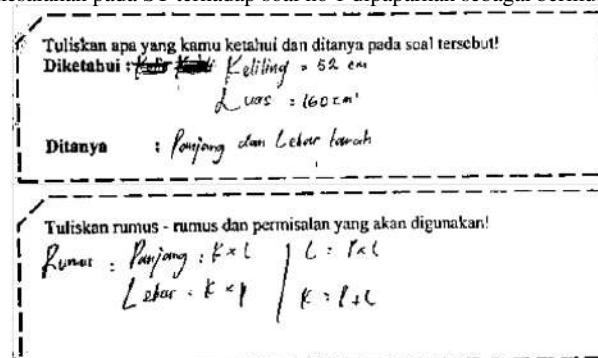 Tuliskan apa yang kamu ketahui dan ditanya pada soal tersebut!
Diketahui : Keliling = 52 cm
Luas = 160 cm²
Ditanya : Panjang dan Lebar tanah
Tuliskan rumus - rumus dan permisalan yang akan digunakan!
Rumus : Panjang : K × L
Lebar : K × P
L : P × L
K : P + L